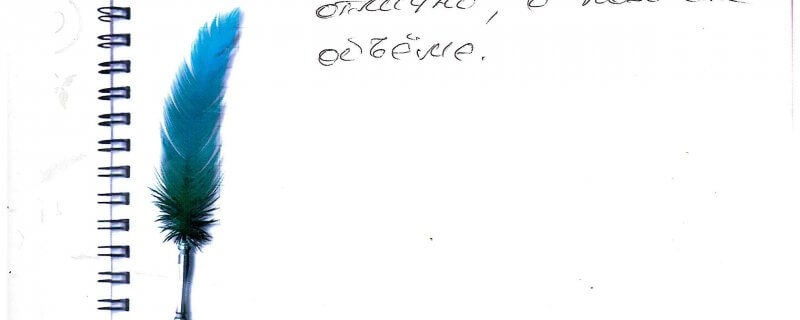 отлично, в полном
объёме.